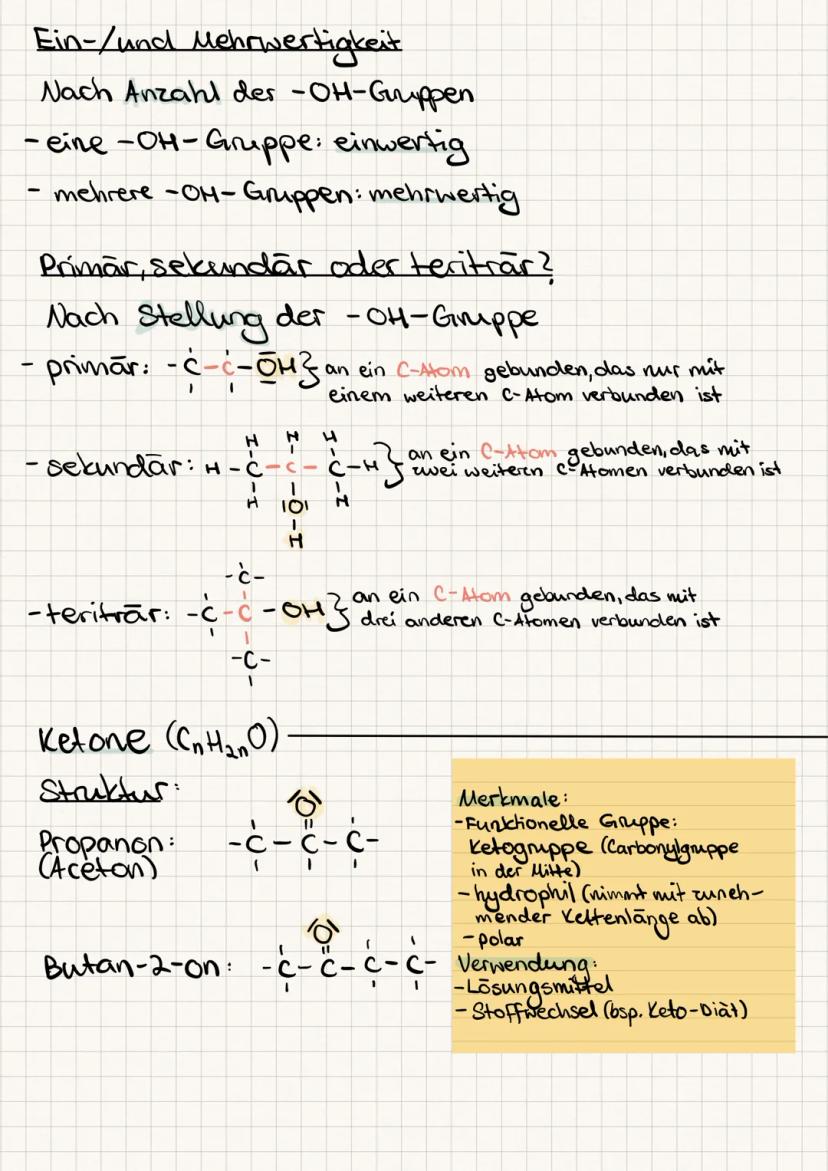 Ein-/und Mehrwertigkeit
Nach Anzahl der -OH-Gruppen
- eine -OH- Gruppe: einwertig
- mehrere -OH- Gruppen: mehrwertig
Primär, sekundär oder teriträr?
Nach Stellung der -OH-Gruppe
- primär: -C-C-OH } an ein C-Atom gebunden, das nur mit
einem weiteren C-Atom verbunden ist
H H H
- sekundär: H-C-C-C-H } an ein C-Atom gebunden, das mit
zwei weitern C-Atomen verbunden ist
H |O| H
H
-C-
- teriträr: -C-C-OH } an ein C-Atom gebunden, das mit
drei anderen C-Atomen verbunden ist
-C-
Ketone (CnH2nO)
Struktur:
O
Propanon: -C-C-C-
(Aceton)
O
Butan-2-on: -C-C-C-C-
Merkmale:
-Funktionelle Gruppe:
Ketogruppe (Carbonylgruppe
in der Mitte)
-hydrophil (nimmt mit zuneh-
mender Kettenlänge ab)
-polar
Verwendung:
-Lösungsmittel
- Stoffwechsel (bsp. Keto-Diät)